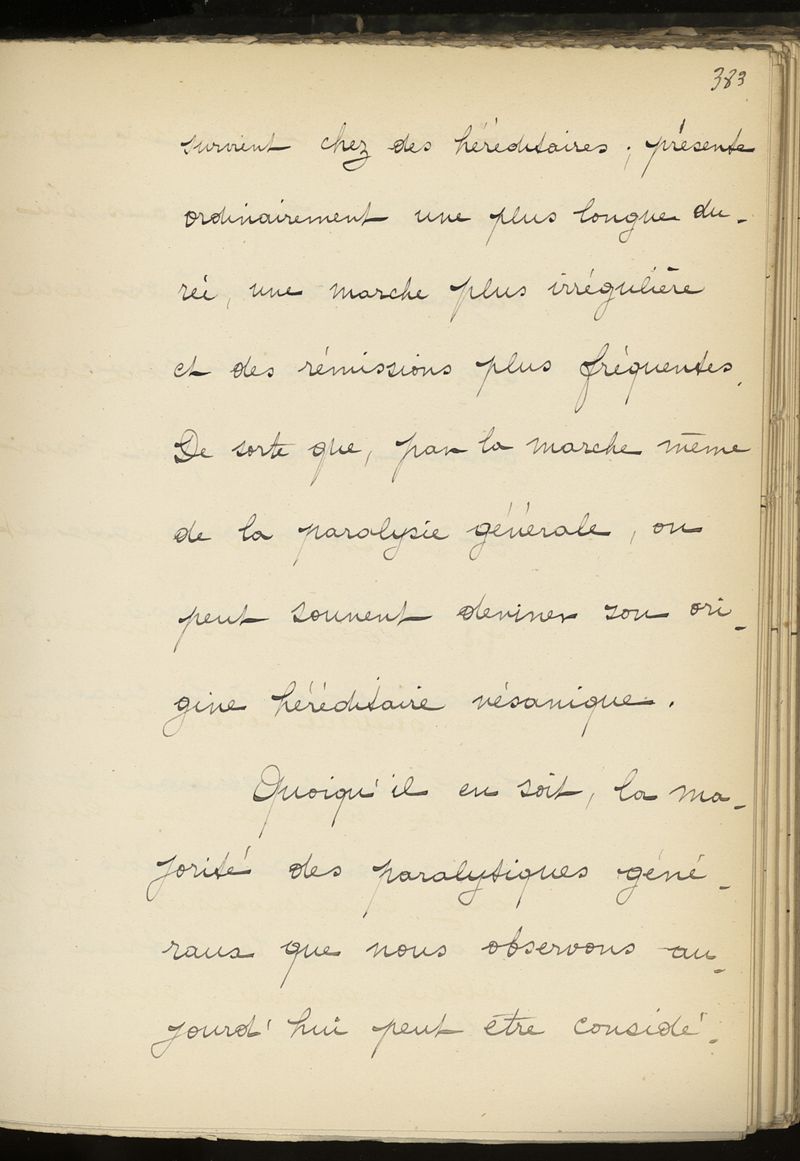 383
survient chez des héréditaires, présente
ordinairement une plus longue du-
rée, une marche plus irrégulière
et des rémissions plus fréquentes.
De sorte que, par la marche même
de la paralysie générale, on
peut souvent deviner son ori-
gine héréditaire vésanique.
Quoiqu'il en soit, la ma-
jorité des paralytiques géné-
raux que nous observons au-
jourd'hui peut être considé-